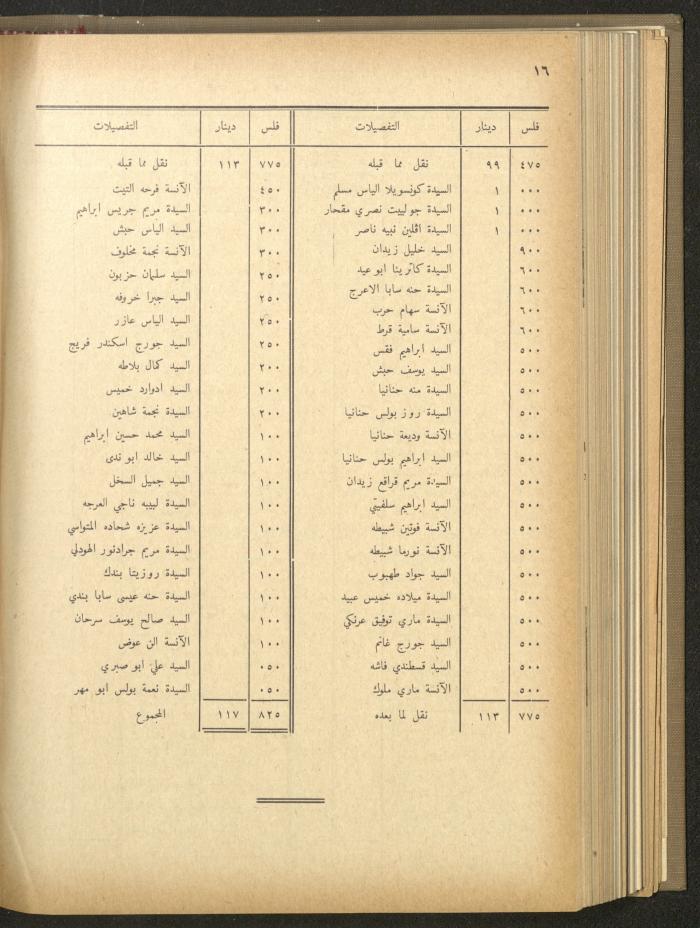 ١٦
فلس دينار التفصيلات
٤٧٥ ٩٩ نقل مما قبله
٠٠٠ ١ السيدة كونسويلا الياس مسلم
٠٠٠ ١ السيدة جولييت نصري مقحار
٠٠٠ ١ السيدة اڤلين نبيه ناصر
٩٠٠ السيد خليل زيدان
٦٠٠ السيدة كاترينا ابو عيد
٦٠٠ السيدة حنه سابا الاعرج
٦٠٠ الآنسة سهام حرب
٦٠٠ الآنسة سامية قرط
٥٠٠ السيد ابراهيم فقس
٥٠٠ السيد يوسف حبش
٥٠٠ السيدة منه حنانيا
٥٠٠ السيدة روز بولس حنانيا
٥٠٠ الآنسة وديعة حنانيا
٥٠٠ السيد ابراهيم بولس حنانيا
٥٠٠ السيدة مريم قراقع زيدان
٥٠٠ السيد ابراهيم سلفيتي
٥٠٠ الآنسة فوتين شبيطه
٥٠٠ الآنسة نورما شبيطه
٥٠٠ السيد جواد طهبوب
٥٠٠ السيدة ميلاده خميس عبيد
٥٠٠ السيدة ماري توفيق عرنكي
٥٠٠ السيد جورج غانم
٥٠٠ السيد قسطندي قاشه
٥٠٠ الآنسة ماري ملوك
٧٧٥ ١١٣ نقل لما بعده
فلس دينار التفصيلات
٧٧٥ ١١٣ نقل مما قبله
٤٥٠ الآنسة فرحه التيت
٣٠٠ السيدة مريم جريس ابراهيم
٣٠٠ السيد الياس حبش
٣٠٠ الآنسة نجمة مخلوف
٢٥٠ السيد سلمان حزبون
٢٥٠ السيد جبرا خروفه
٢٥٠ السيد الياس عازر
٢٥٠ السيد جورج اسكندر فريج
٢٠٠ السيد كمال بلاطه
٢٠٠ السيد ادوارد خميس
٢٠٠ السيدة نجمة شاهين
١٠٠ السيد محمد حسين ابراهيم
١٠٠ السيد خالد ابو ندى
١٠٠ السيد جميل السخل
١٠٠ السيدة لبيبه ناجي العرجه
١٠٠ السيدة عزيزه شحاده المتواسي
١٠٠ السيدة مريم جرادنور الهودلي
١٠٠ السيدة روزيتا بندك
١٠٠ السيدة حنه عيسى سابا بندي
١٠٠ السيد صالح يوسف سرحان
١٠٠ الآنسة الن عوض
٠٥٠ السيد علي ابو صبري
٠٥٠ السيدة نعمة بولس ابو مهر
٨٢٥ ١١٧ المجموع